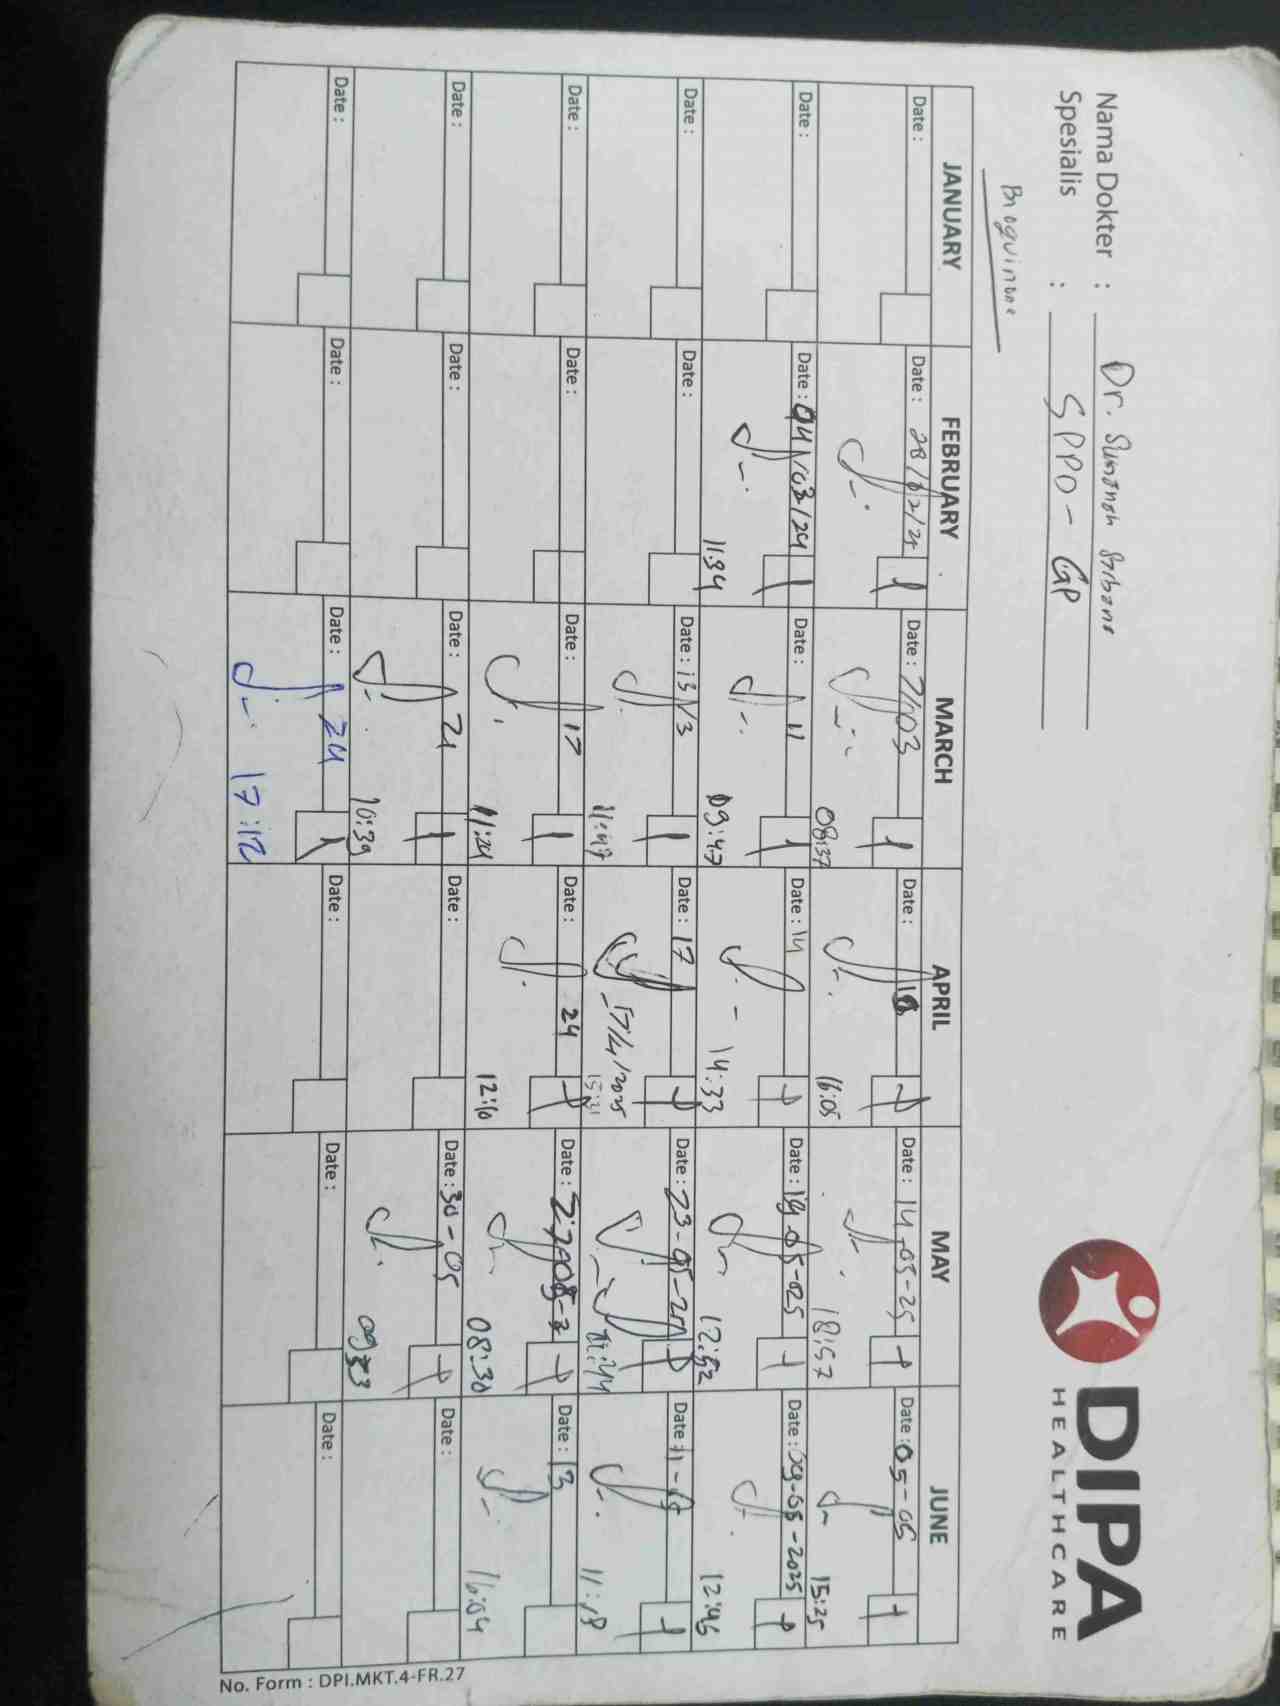 Nama Dokter : Dr.
Spesialis : SPPD - GP
DIPA
HEALTHCARE
JANUARY FEBRUARY MARCH APRIL MAY JUNE
Date : Date : 28/02/25 Date : 7/03 Date : Date : 14-05-25 Date : 05-05
08:37 16:05 18:57 15:25
Date : Date : 04/03/24 Date : 11 Date : 14 Date : 19-05-25 Date : 09-05-2025
11:34 09:47 14:33 12:52 12:46
Date : Date : Date : 13/3 Date : 17 Date : 23-05-25 Date : 11-
11:47 17/4/2025 15:21 11:44 11:18
Date : Date : Date : 17 Date : 24 Date : Date : 13
11:24 12:10 08:30 16:04
Date : Date : Date : 21 Date : Date : 30-05 Date :
10:39 09:33
Date : Date : Date : 24 Date : Date : Date :
17:12
No. Form : DPI.MKT.4-FR.27